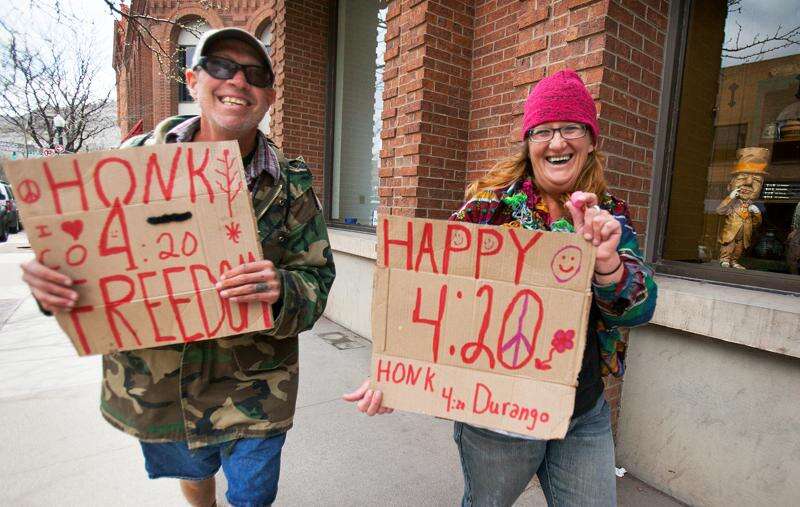 HONK
I 4:20
CO
FREEDOM
HAPPY
4:20
HONK 4:20 Durango